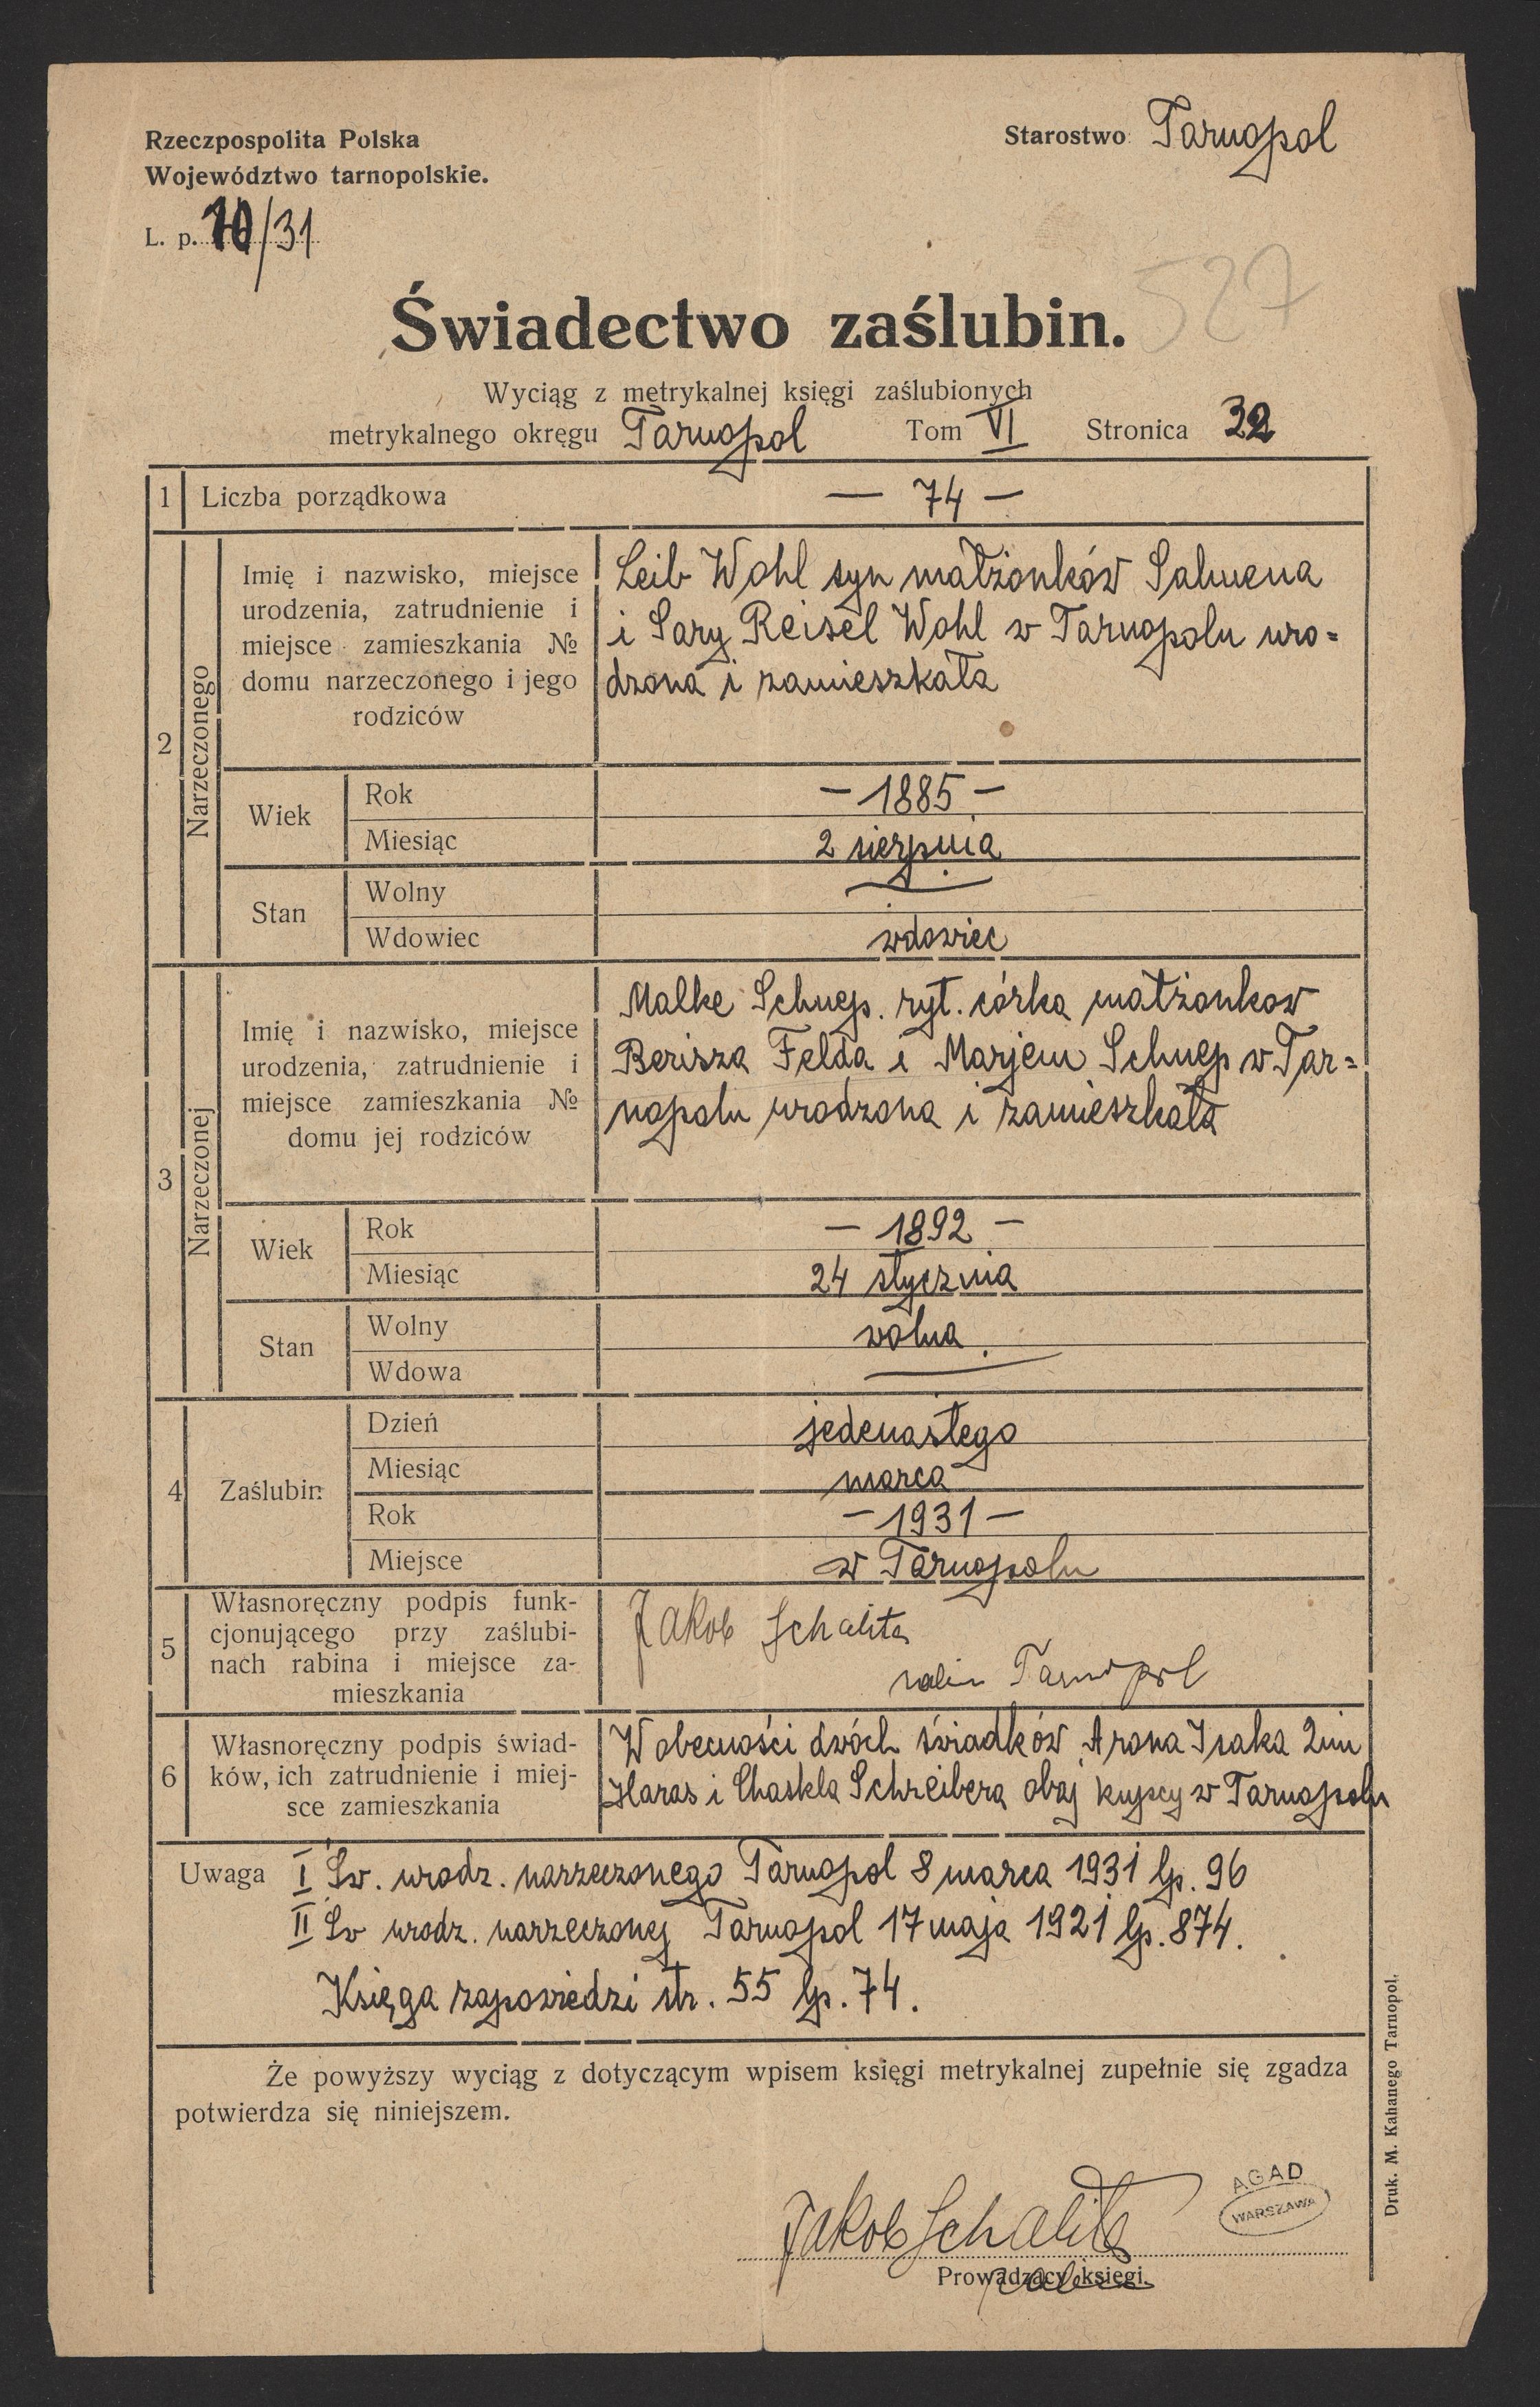 Rzeczpospolita Polska
Województwo tarnopolskie.
Starostwo Tarnopol
L. p. 70/31
527
Świadectwo zaślubin.
Wyciąg z metrykalnej księgi zaślubionych
metrykalnego okręgu Tarnopol Tom VI Stronica 32
1 Liczba porządkowa — 74 —
2 Narzeczonego
Imię i nazwisko, miejsce
urodzenia, zatrudnienie i
miejsce zamieszkania №
domu narzeczonego i jego
rodziców
Leib Wohl syn małżonków Salmena
i Sary Reisel Wohl w Tarnopolu uro=
dzona i zamieszkała
Wiek Rok — 1885 —
Miesiąc 2 sierpnia
Stan Wolny
Wdowiec wdowiec
3 Narzeczonej
Imię i nazwisko, miejsce
urodzenia, zatrudnienie i
miejsce zamieszkania №
domu jej rodziców
Malke Schnep. ryt. córka małżonkow
Berisza Felda i Marjem Schnep w Tar=
nopolu urodzona i zamieszkała
Wiek Rok — 1892 —
Miesiąc 24 stycznia
Stan Wolny wolna
Wdowa
4 Zaślubin Dzień jedenastego
Miesiąc marca
Rok — 1931 —
Miejsce w Tarnopolu
5 Własnoręczny podpis funk-
cjonującego przy zaślubi-
nach rabina i miejsce za-
mieszkania
Jakob Schalita
rabin Tarnopol
6 Własnoręczny podpis świad-
ków, ich zatrudnienie i miej-
sce zamieszkania
W obecności dwóch świadków Arona Isaka 2im
Haras i Chaskla Schreibera obaj kupcy w Tarnopolu
Uwaga I Św. urodz. narzeczonego Tarnopol 8 marca 1931 lp. 96
II Św urodz. narzeczonej Tarnopol 17 maja 1921 lp. 874.
Księga zapowiedzi str. 55 lp. 74.
Że powyższy wyciąg z dotyczącym wpisem księgi metrykalnej zupełnie się zgadza
potwierdza się niniejszem.
AGAD
WARSZAWA
Jakob Schalita
rabin
Prowadzący księgi.
Druk. M. Kahanego Tarnopol.